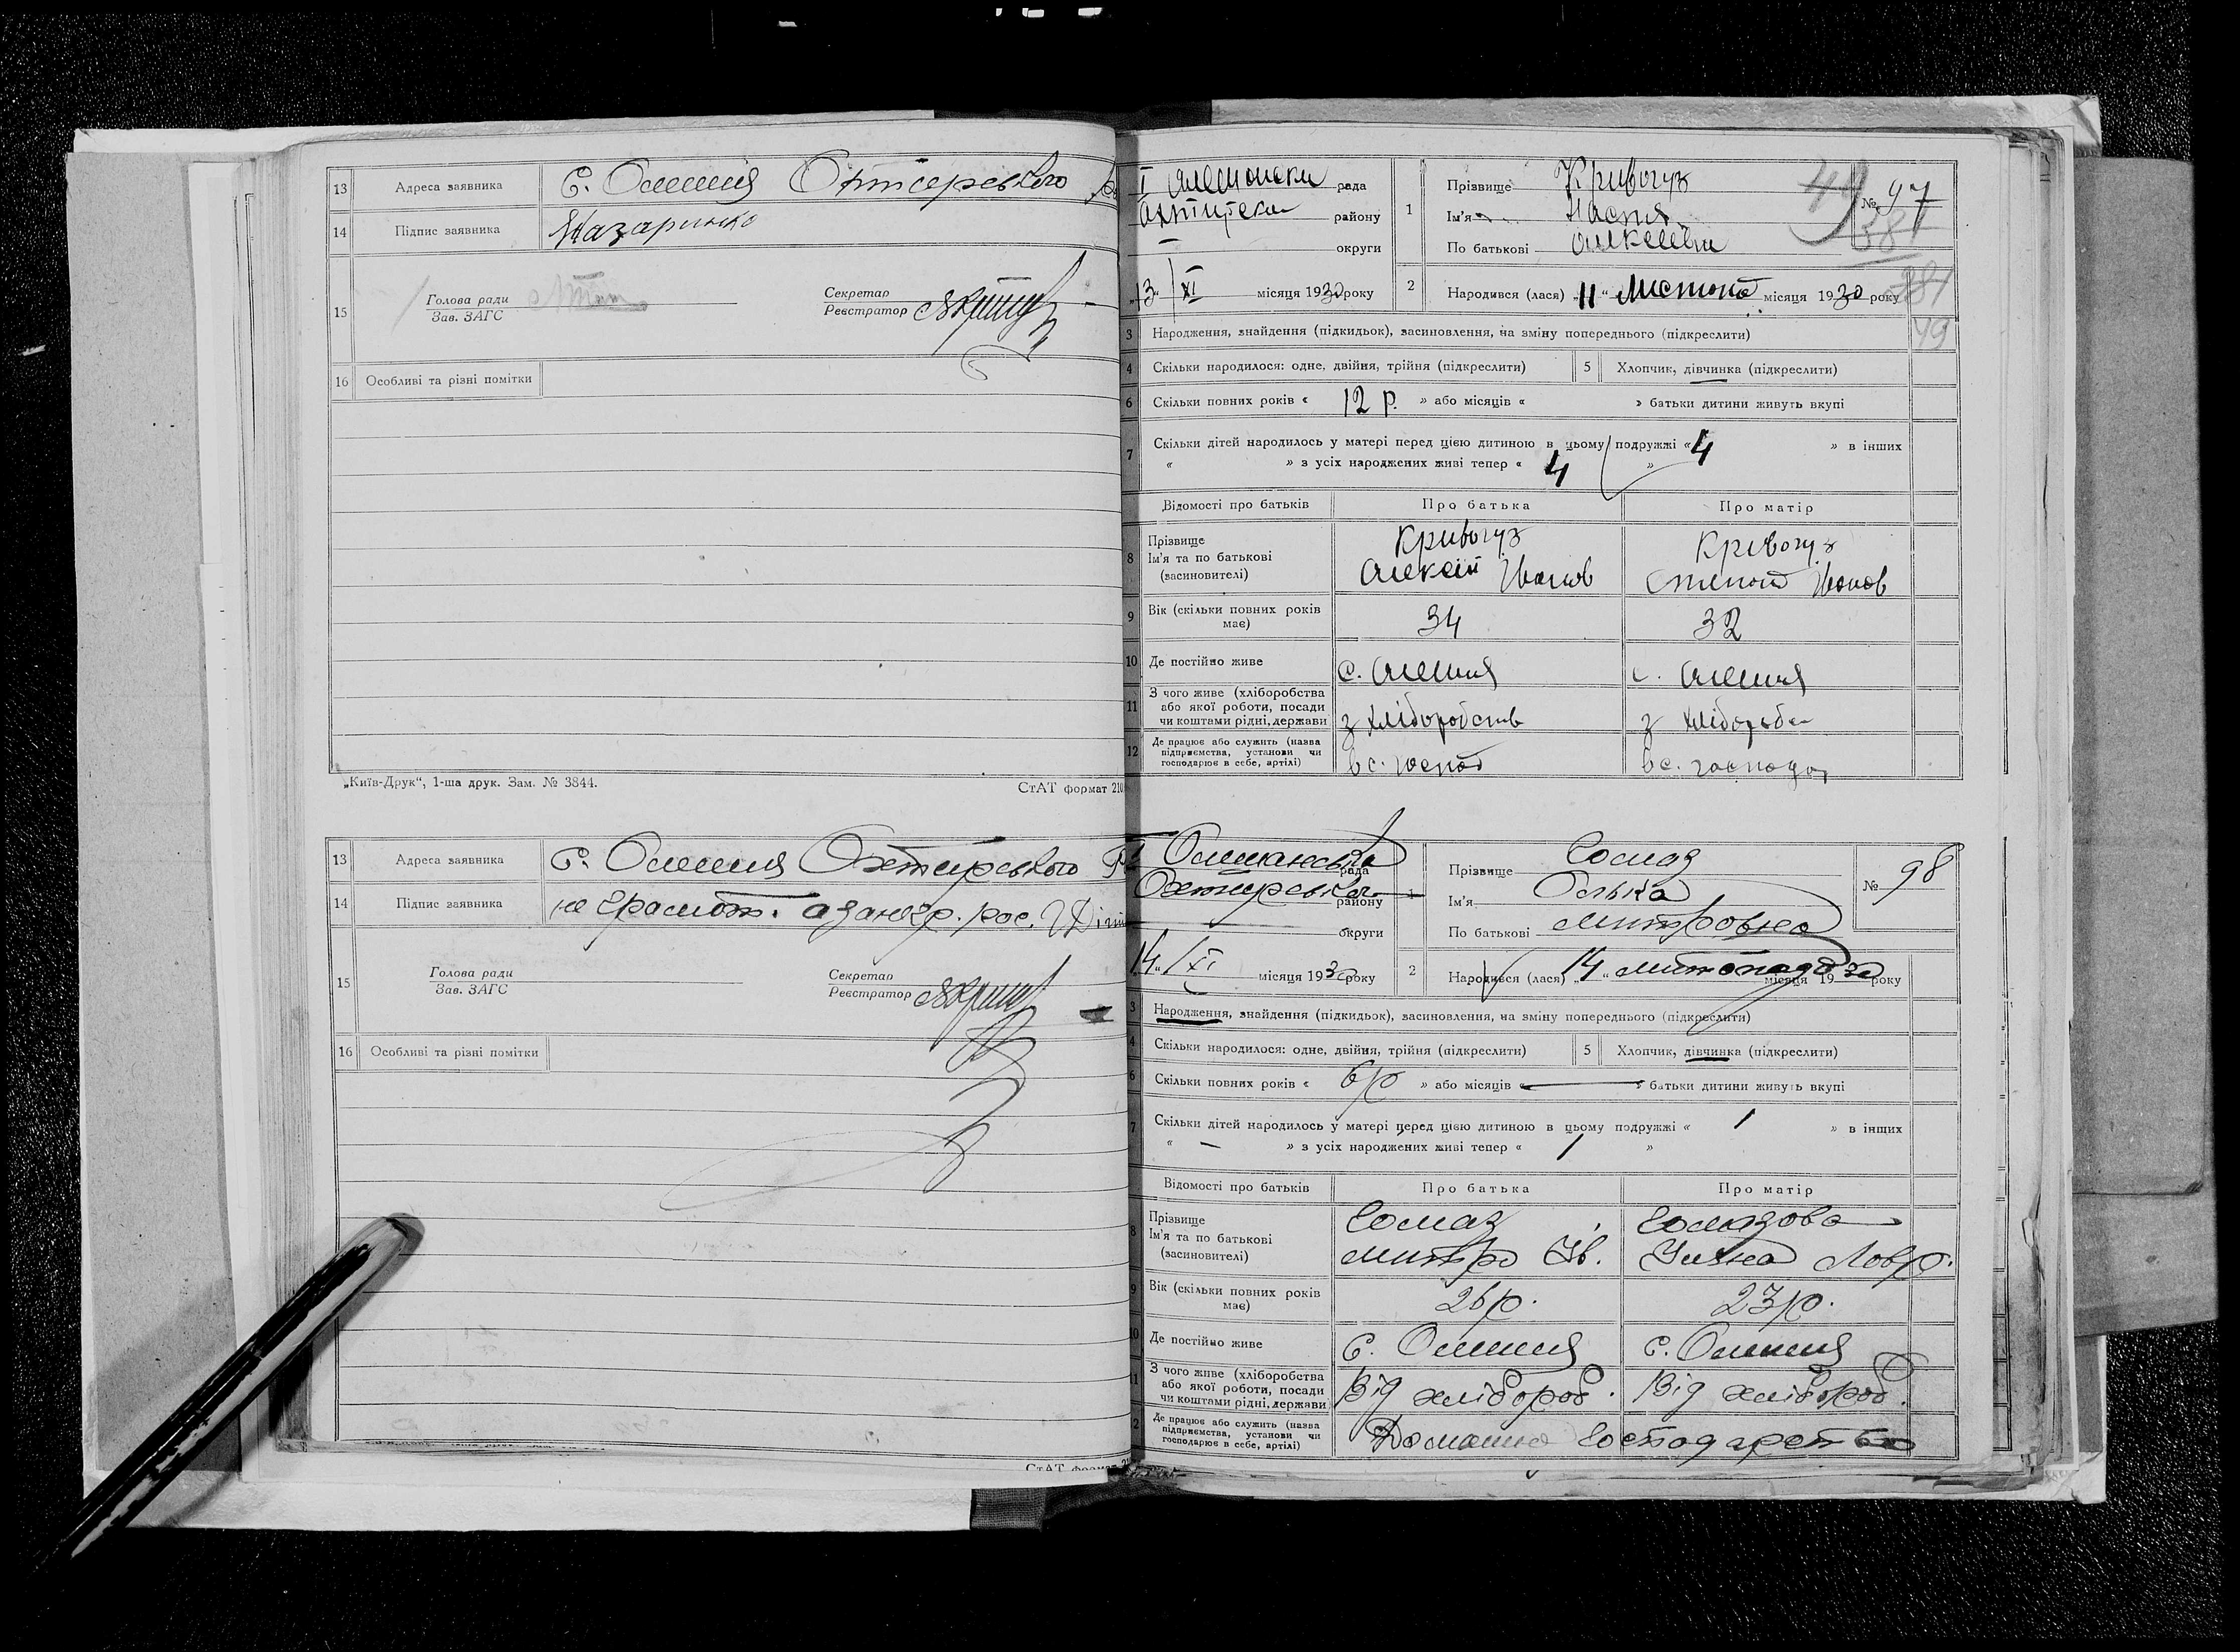 13 Адреса заявника с. Олешня Охтирського
14 Підпис заявника Назаренко
15 Голова ради
Зав. ЗАГС
Секретар
Реєстратор
16 Особливі та різні помітки
„Київ-Друк“, 1-ша друк. Зам. № 3844.
СтАТ формат 210
13 Адреса заявника с. Олешня Охтирського
14 Підпис заявника не грамот.
15 Голова ради
Зав. ЗАГС
Секретар
Реєстратор
16 Особливі та різні помітки
СтАТ формат
I рада
району
округи
„13“ XI місяця 1930 року
1 Прізвище Кривогуз
Ім'я Настя
По батькові
№ 97
2 Народився (лася) „11“ Листопад місяця 1930 року
381
49
3 Народження, знайдення (підкидьок), засиновлення, на зміну попереднього (підкреслити)
4 Скільки народилося: одне, двійня, трійня (підкреслити) 5 Хлопчик, дівчинка (підкреслити)
6 Скільки повних років « 12 р. » або місяців « » батьки дитини живуть вкупі
7 Скільки дітей народилось у матері перед цією дитиною в цьому подружжі « 4 » в інших
« » з усіх народжених живі тепер « 4 »
Відомості про батьків Про батька Про матір
8 Прізвище
Ім'я та по батькові
(засиновителі)
Кривогуз
Алексій Иванов
Кривогуз
Иванов
9 Вік (скільки повних років має) 34 32
10 Де постійно живе с. Алешня с. Алешня
11 З чого живе (хліборобства
або якої роботи, посади
чи коштами рідні, держави
з хліборобств з
12 Де працює або служить (назва
підприємства, установи чи
господарює в себе, артілі)
в с. господ в с. господар
Олешанська рада
Охтирського району
округи
„14“ XI місяця 1930 року
1 Прізвище Гомаз
Ім'я
По батькові Митровна
№ 98
2 Народився (лася) „14“ листопада місяця 1930 року
3 Народження, знайдення (підкидьок), засиновлення, на зміну попереднього (підкреслити)
4 Скільки народилося: одне, двійня, трійня (підкреслити) 5 Хлопчик, дівчинка (підкреслити)
6 Скільки повних років « 6 р » або місяців « — » батьки дитини живуть вкупі
7 Скільки дітей народилось у матері перед цією дитиною в цьому подружжі « 1 » в інших
« — » з усіх народжених живі тепер « 1 »
Відомості про батьків Про батька Про матір
8 Прізвище
Ім'я та по батькові
(засиновителі)
Гомаз
Митро Ів.
Гомазова
Уляна Лавр.
9 Вік (скільки повних років має) 26 р. 23 р.
10 Де постійно живе с. Олешня с. Олешня
11 З чого живе (хліборобства
або якої роботи, посади
чи коштами рідні, держави
Від хлібороб. Від хлібороб.
12 Де працює або служить (назва
підприємства, установи чи
господарює в себе, артілі)
Домашнє господарство